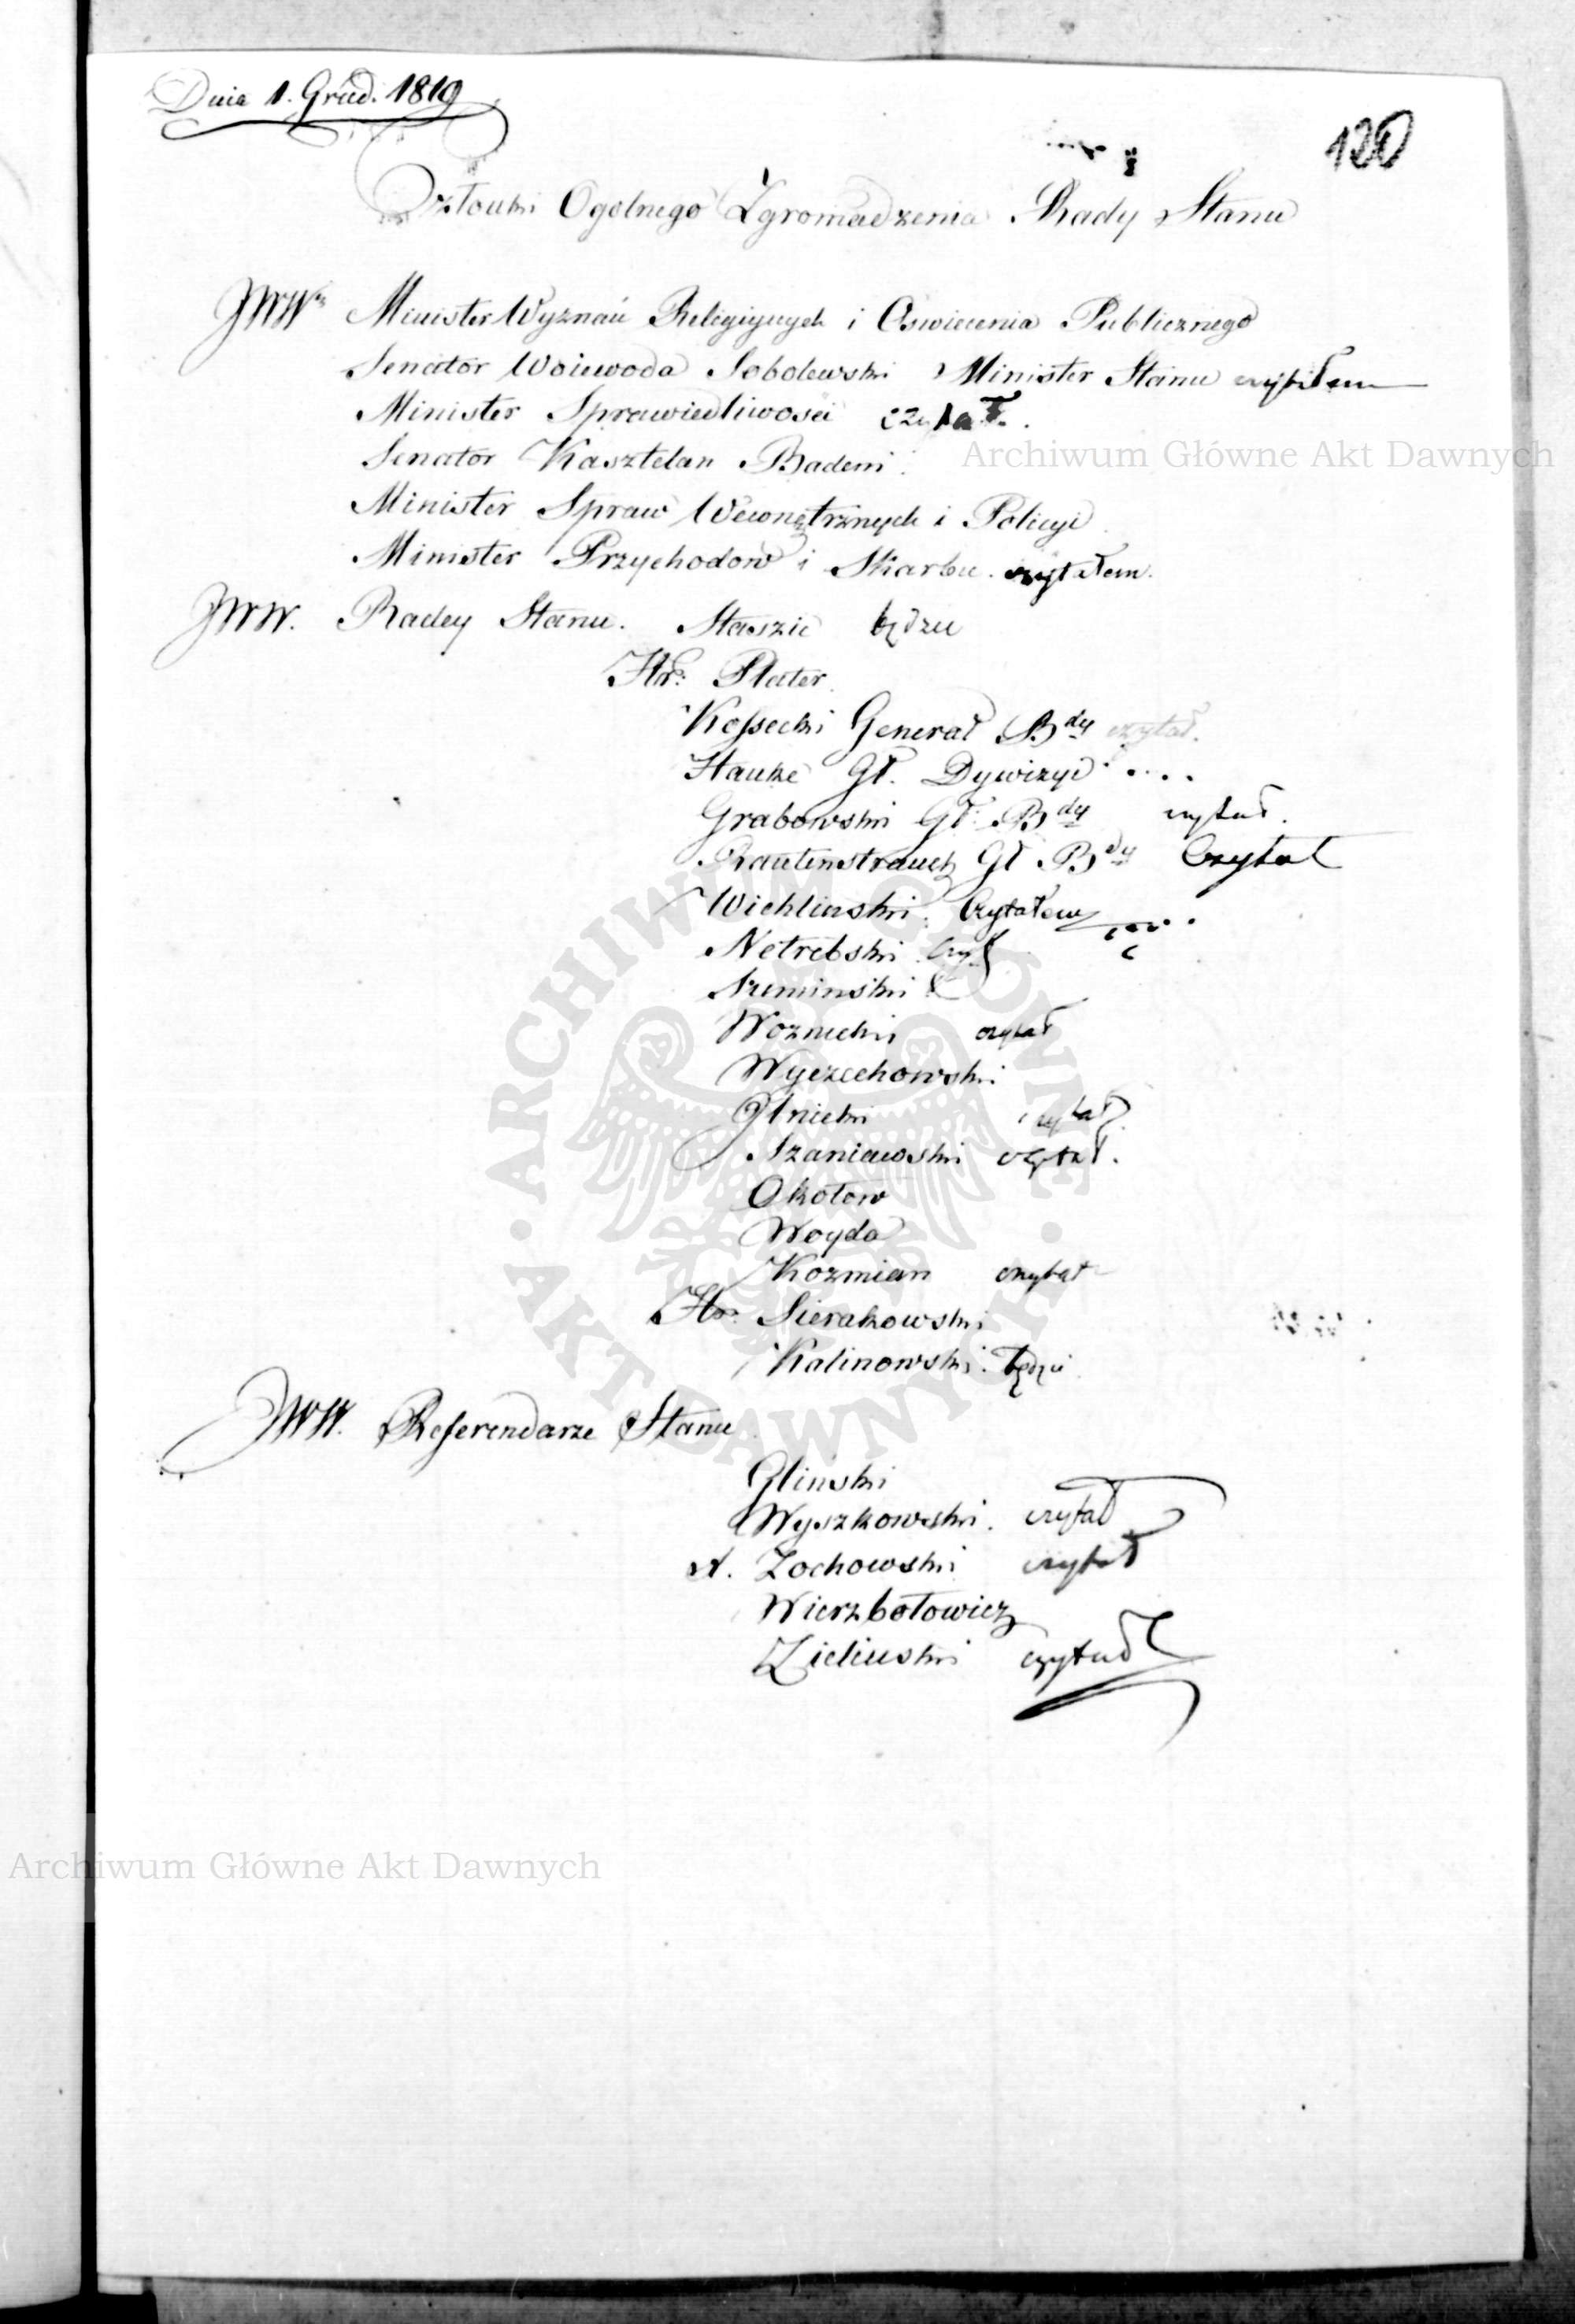 Dnia 1. Grud. 1819
120
Członki Ogolnego Zgromadzenia Rady Stanu
JWW Minister Wyznań Religiynych i Oswiecenia Publicznego
Senator Woiewoda Sobolewski Minister Stanu czytałem
Minister Sprawiedliwosci czytał.
Archiwum Główne Akt Dawnych
Senator Kasztelan Badeni.
Minister Spraw Wewnętrznych i Policyi
Minister Przychodow i Skarbu. czytałem.
JWW. Radcy Stanu. Staszic będzie
Hr: Plater
Kossecki Generał Bdy czytał.
Hauke Gł. Dywizyi
Grabowski Gł. Bdy czytał.
Rautenstrauch Gł Bdy Czytał
Wichlinski. Czytałem
Netrebski. Czyt
Suminski
Woznicki czytał
Wyczechowski
Gliniecki czytał
Szaniawski czytał.
Okołow
Woyda
Kozmian czytał
Hr. Sierakowski
Kalinowski. będzie
JWW. Referendarze Stanu
Glinski
Wyszkowski. czytał
A. Zochowski czytał
Wierzbołowicz
Zielinski czytał
ARCHIWUM GŁÓWNE AKT DAWNYCH
Archiwum Główne Akt Dawnych